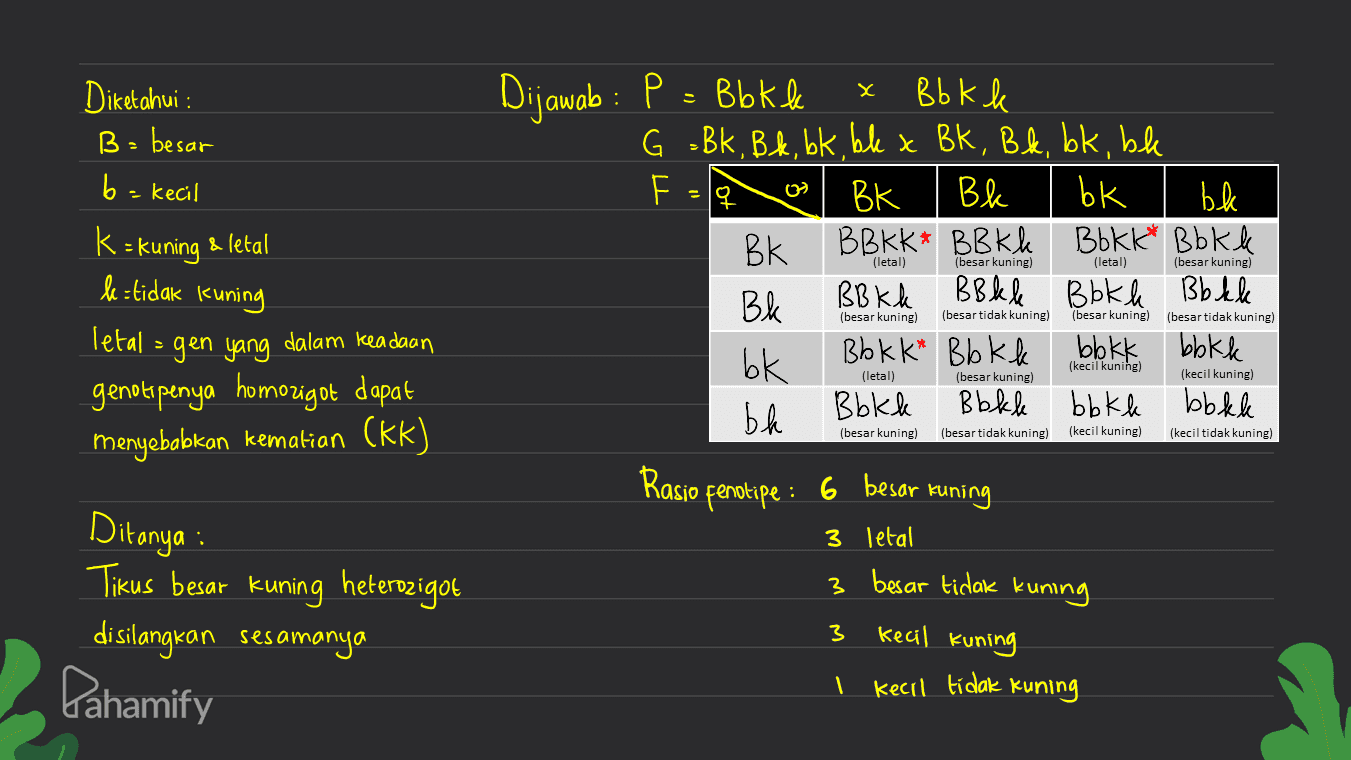 Diketahui :
B = besar
b = kecil
K = kuning & letal
k = tidak kuning
letal = gen yang dalam keadaan
genotipenya homozigot dapat
menyebabkan kematian (KK)
Ditanya :
Tikus besar kuning heterozigot
disilangkan sesamanya
Dijawab : P = BbKk x BbKk
G = BK, Bk, bK, bk x BK, Bk, bK, bk
F =
♀ ♂ BK Bk bK bk
BK BBKK* BBKk BbKK* BbKk
(letal) (besar kuning) (letal) (besar kuning)
Bk BBKk BBkk BbKk Bbkk
(besar kuning) (besar tidak kuning) (besar kuning) (besar tidak kuning)
bK BbKK* BbKk bbKK bbKk
(letal) (besar kuning) (kecil kuning) (kecil kuning)
bk BbKk Bbkk bbKk bbkk
(besar kuning) (besar tidak kuning) (kecil kuning) (kecil tidak kuning)
Rasio fenotipe : 6 besar kuning
3 letal
3 besar tidak kuning
3 kecil kuning
1 kecil tidak kuning
Pahamify